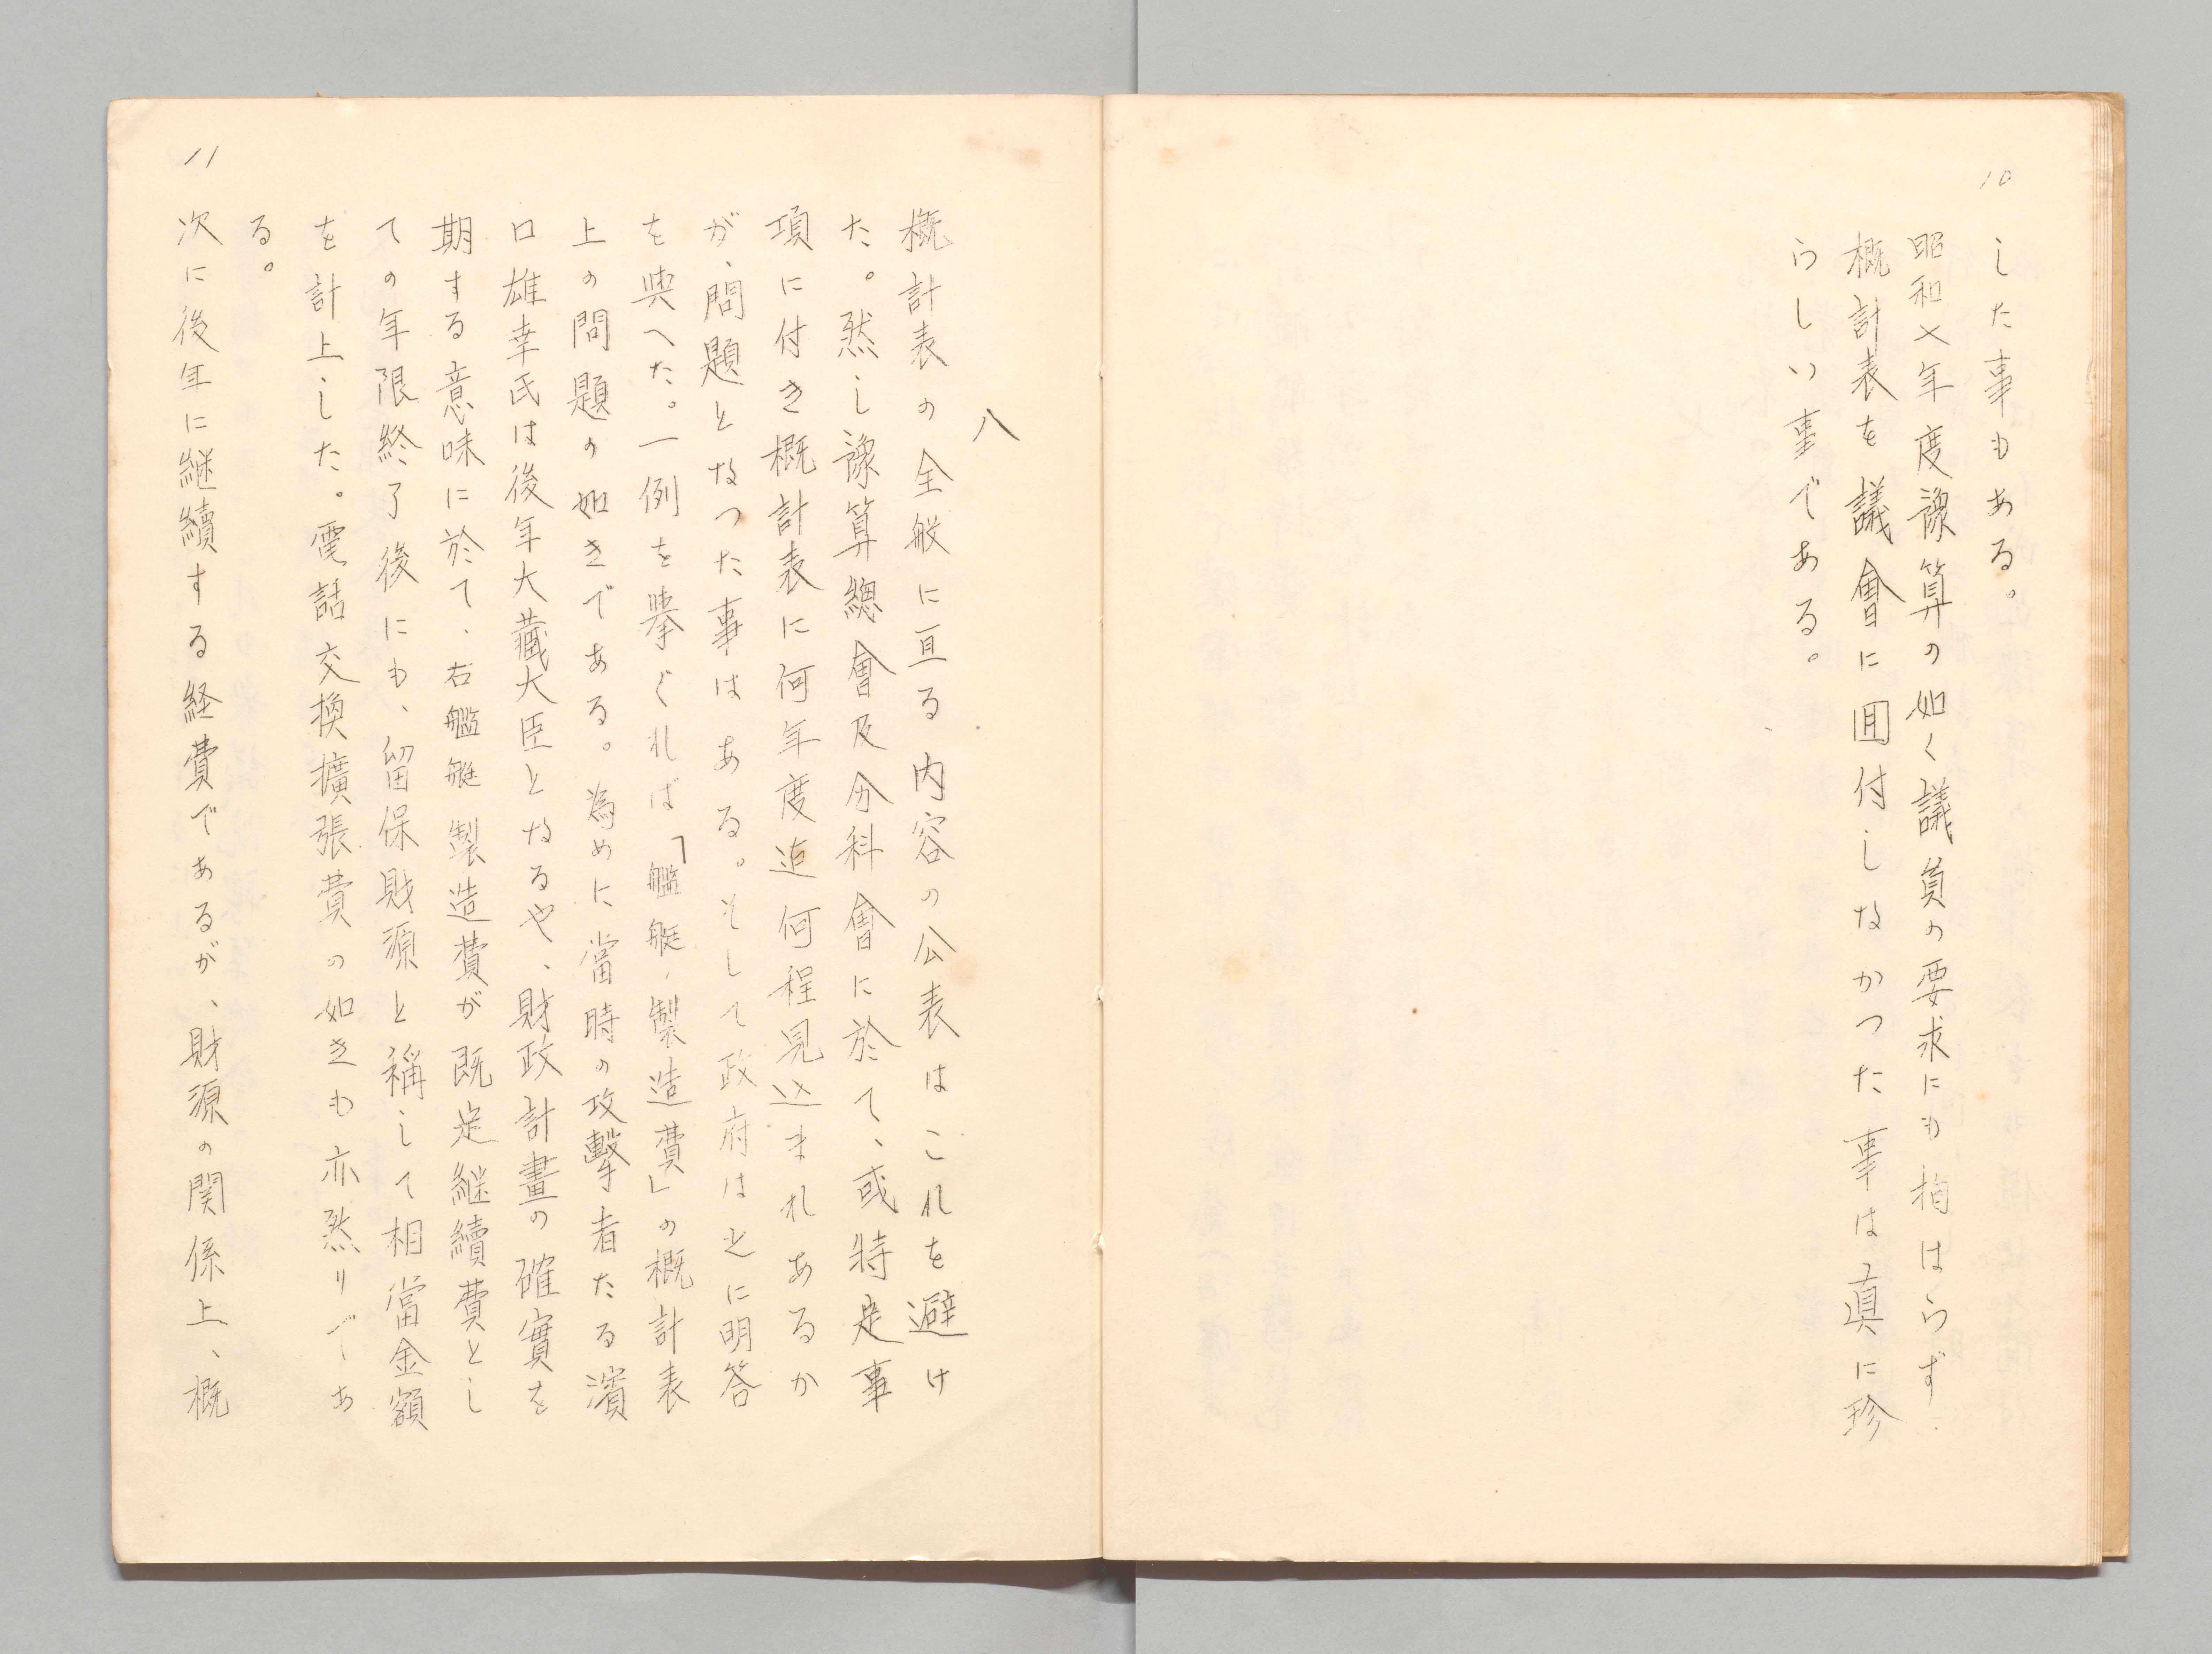 10
した事もある。
昭和×年度豫算の如く議員の要求にも拘はらず、
概計表を議會に囬付しなかつた事は眞に珍
らしい事である。
八
概計表の全般に亘る内容の公表はこれを避け
た。然し豫算總會及分科會に於て、或特定事
項に付き概計表に何年度迄何程見込まれあるか
が、問題となつた事はある。そして政府は之に明答
を與へた。一例を擧ぐれば「艦艇、製造費」の概計表
上の問題の如きである。為めに當時の攻擊者たる濱
口雄幸氏は後年大藏大臣となるや、財政計畫の確實を
期する意味に於て、右艦艇製造費が既定継續費とし
ての年限終了後にも、留保財源と稱して相當金額
を計上した。電話交換擴張費の如きも亦然りであ
る。
11
次に後年に継續する経費であるが、財源の関係上、概